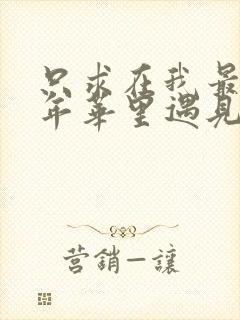 只求在我最
年華里遇見
营銷—讓